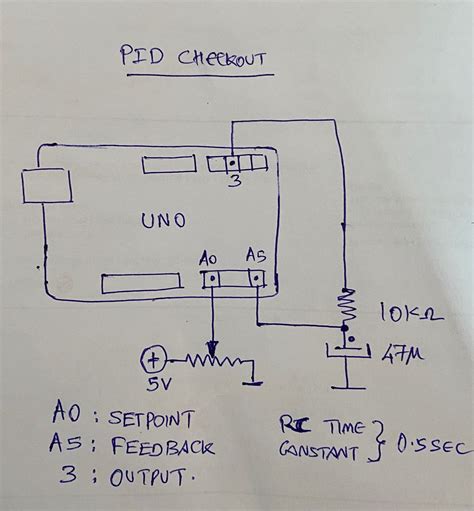 PID CHECKOUT
3
UNO
A0 A5
10KΩ
47µ
+
5V
A0 : SETPOINT
A5 : FEEDBACK
3 : OUTPUT.
RC TIME
CONSTANT } 0.5SEC